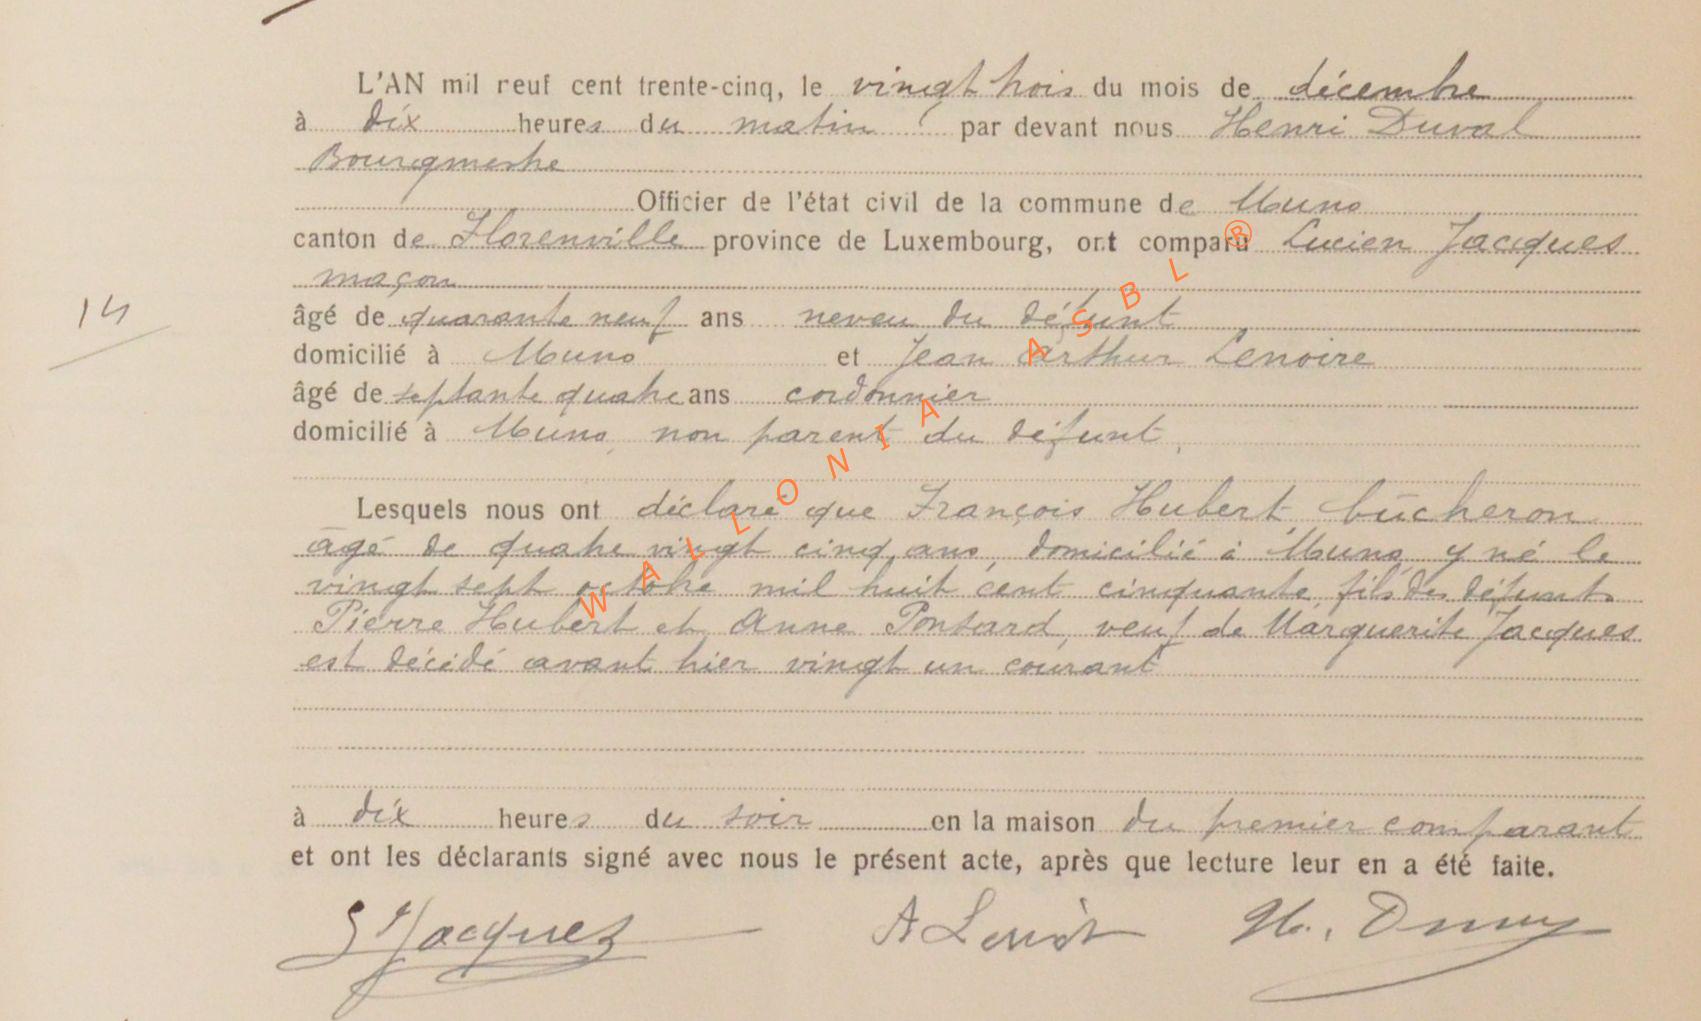 L'AN mil neuf cent trente-cinq, le vingt trois du mois de décembre
à dix heures du matin par devant nous Henri Duval
Bourgmestre
Officier de l'état civil de la commune de Muno
canton de Florenville province de Luxembourg, ont comparu Lucien Jacques
maçon
14
âgé de quarante neuf ans neveu du défunt
domicilié à Muno et Jean Arthur Lenoire
âgé de septante quatre ans cordonnier
domicilié à Muno, non parent du défunt,
Lesquels nous ont déclaré que François Hubert, bûcheron
âgé de quatre vingt cinq ans, domicilié à Muno, y né le
vingt sept octobre mil huit cent cinquante, fils des défunts
Pierre Hubert et Anne Ponsard, veuf de Marguerite Jacques
est décédé avant hier vingt un courant
à dix heures du soir en la maison du premier comparant
et ont les déclarants signé avec nous le présent acte, après que lecture leur en a été faite.
Jacques A Lenoir H. Duval
WALLONIA ASBL ®